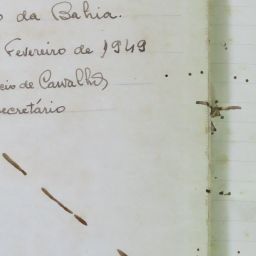 da Bahia.
Fevereiro de 1949
de Carvalho
ecretário